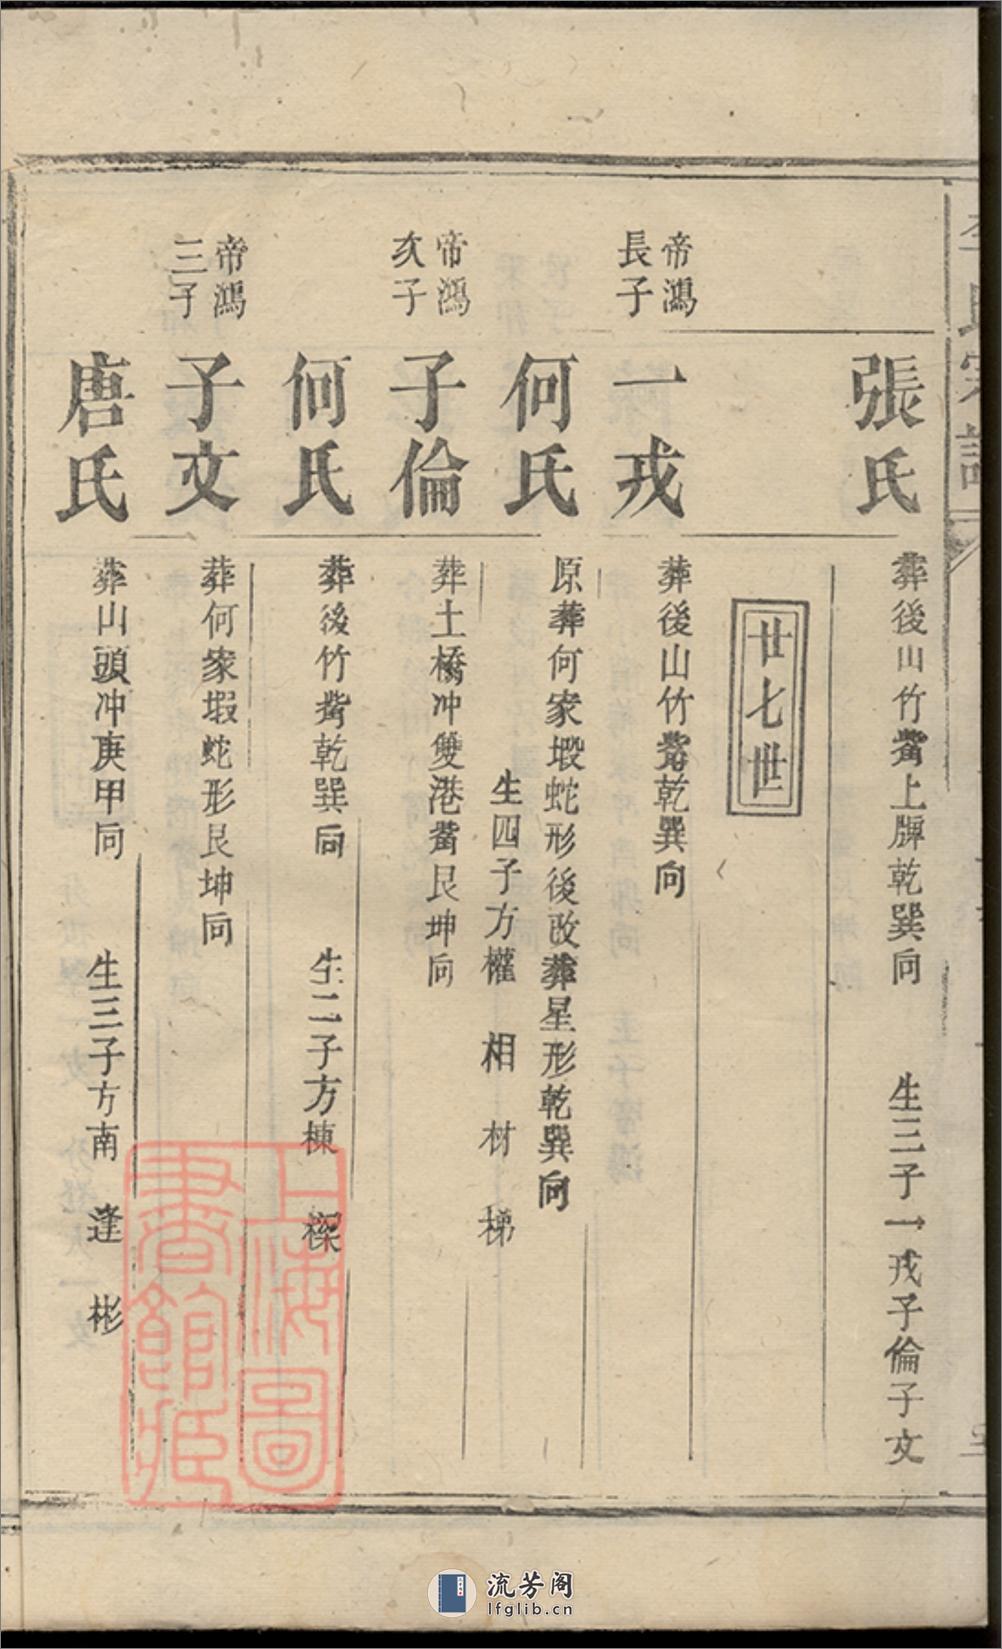 張氏
葬後山竹觜上牌乾巽向
生三子一戎子倫子文
廿七世
帝鴻
長子
一戎
葬後山竹觜乾巽向
何氏
原葬何家塅蛇形後改葬星形乾巽向
生四子方權 相 材 梯
帝鴻
次子
子倫
葬土橋冲雙港觜艮坤向
何氏
葬後竹觜乾巽向
生二子方棟 樑
帝鴻
三子
子文
葬何家塅蛇形艮坤向
唐氏
葬山頭冲庚甲向
生三子方南 逢 彬
上海圖
書館藏
流芳阁
lfglib.cn